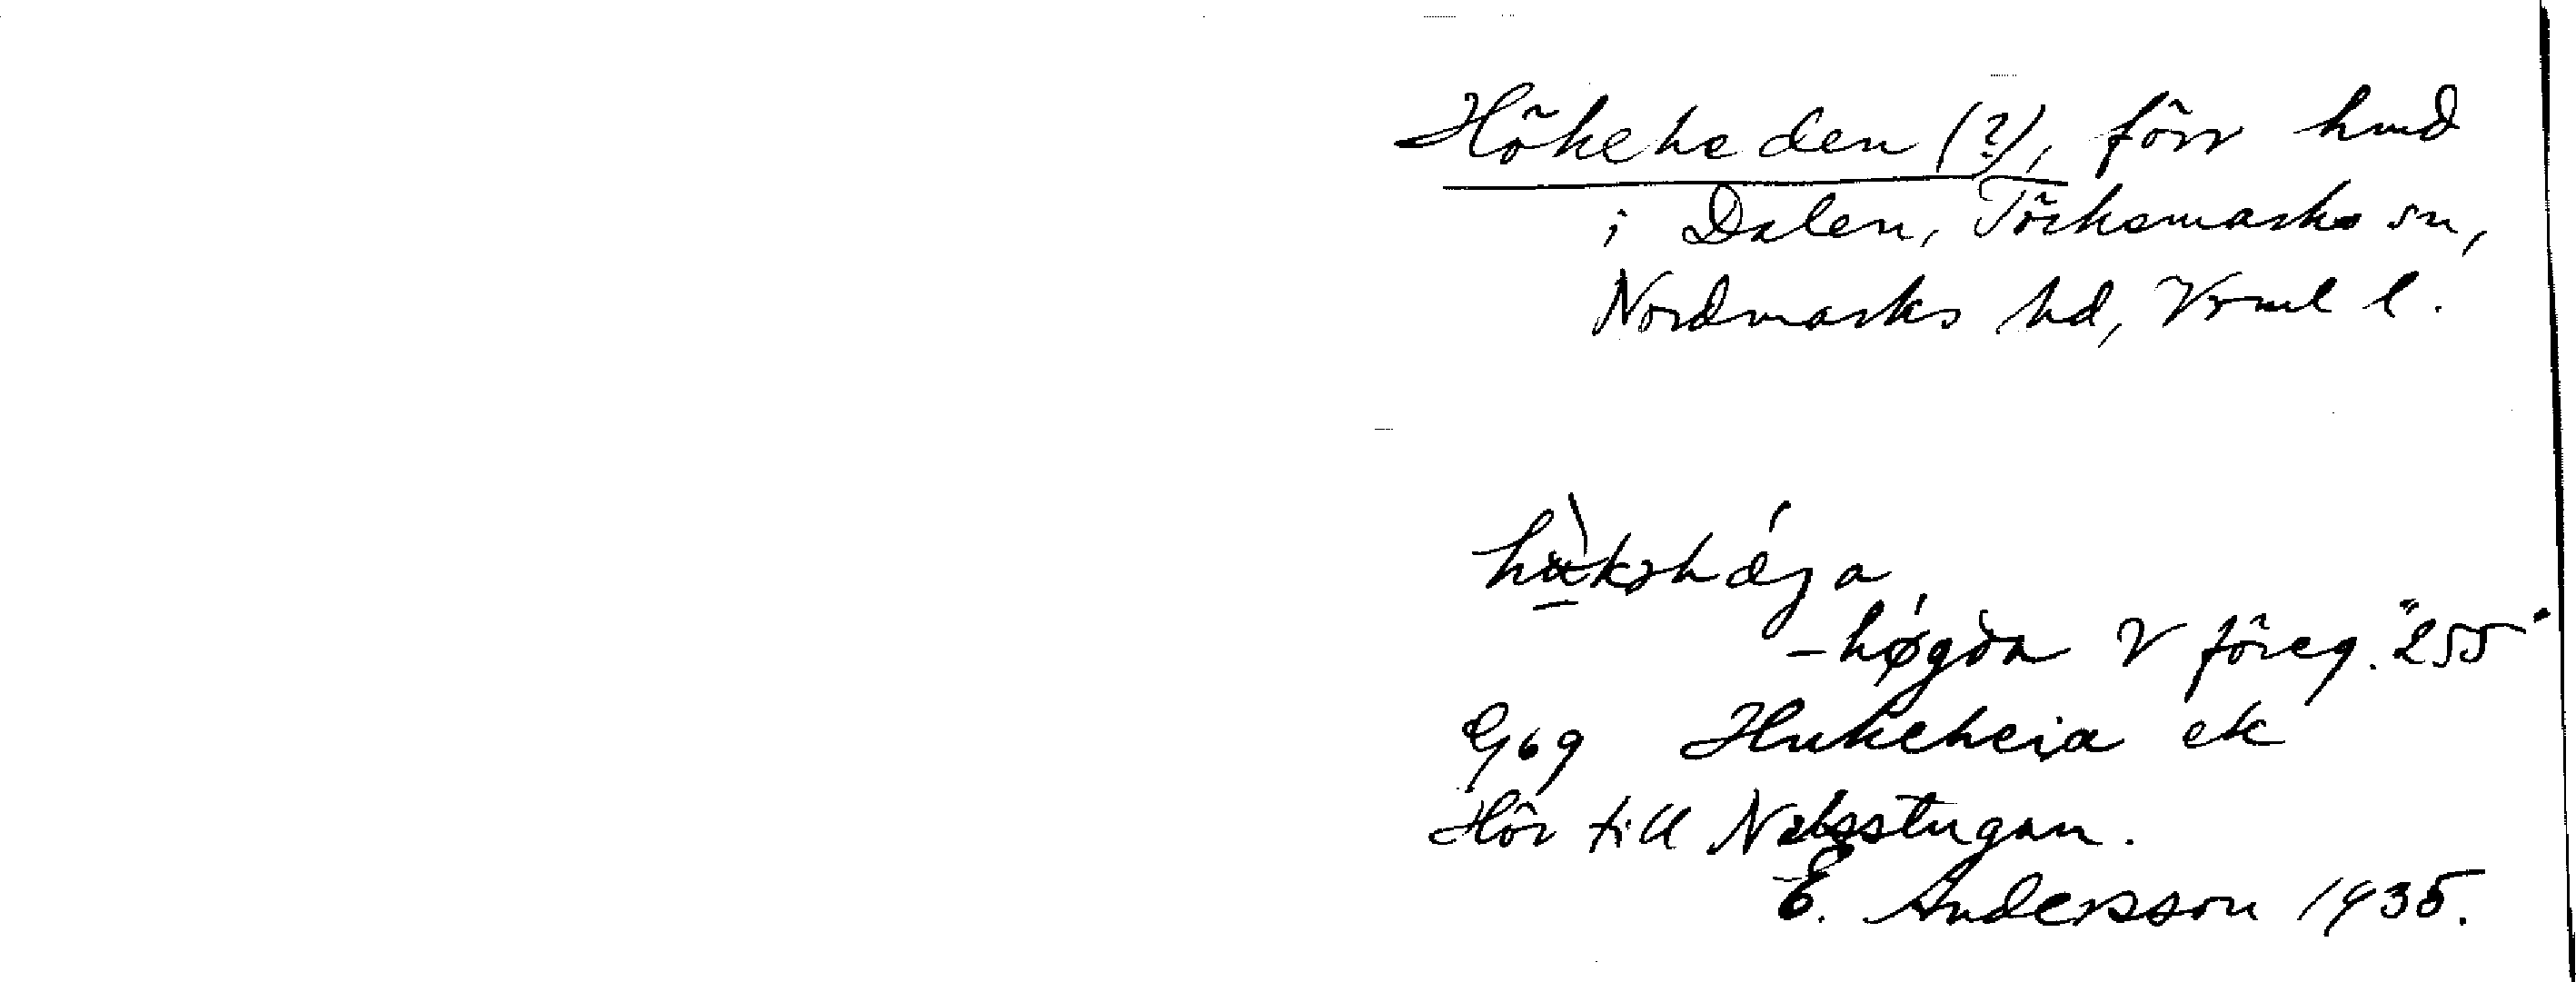 Hökeheden (?), förr hmd
i Dalen, Töcksmarks sn,
Nordmarks hd, Vrml l.
-høgda V föreg. "255"
Gbg Hukeheia ek
Hör till Nabsstugan.
E. Andersson 1935.